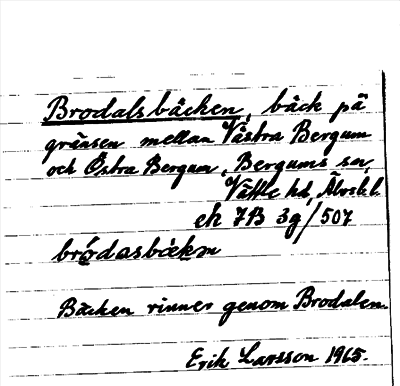 Brodalsbäcken, bäck på
gränsen mellan Västra Bergum
och Östra Bergum, Bergums sn,
Vättle hd, Älvsb l.
ek 7B 3g/507
brǫ́dasbὰkm
Bäcken rinner genom Brodalen.
Erik Larsson 1965.